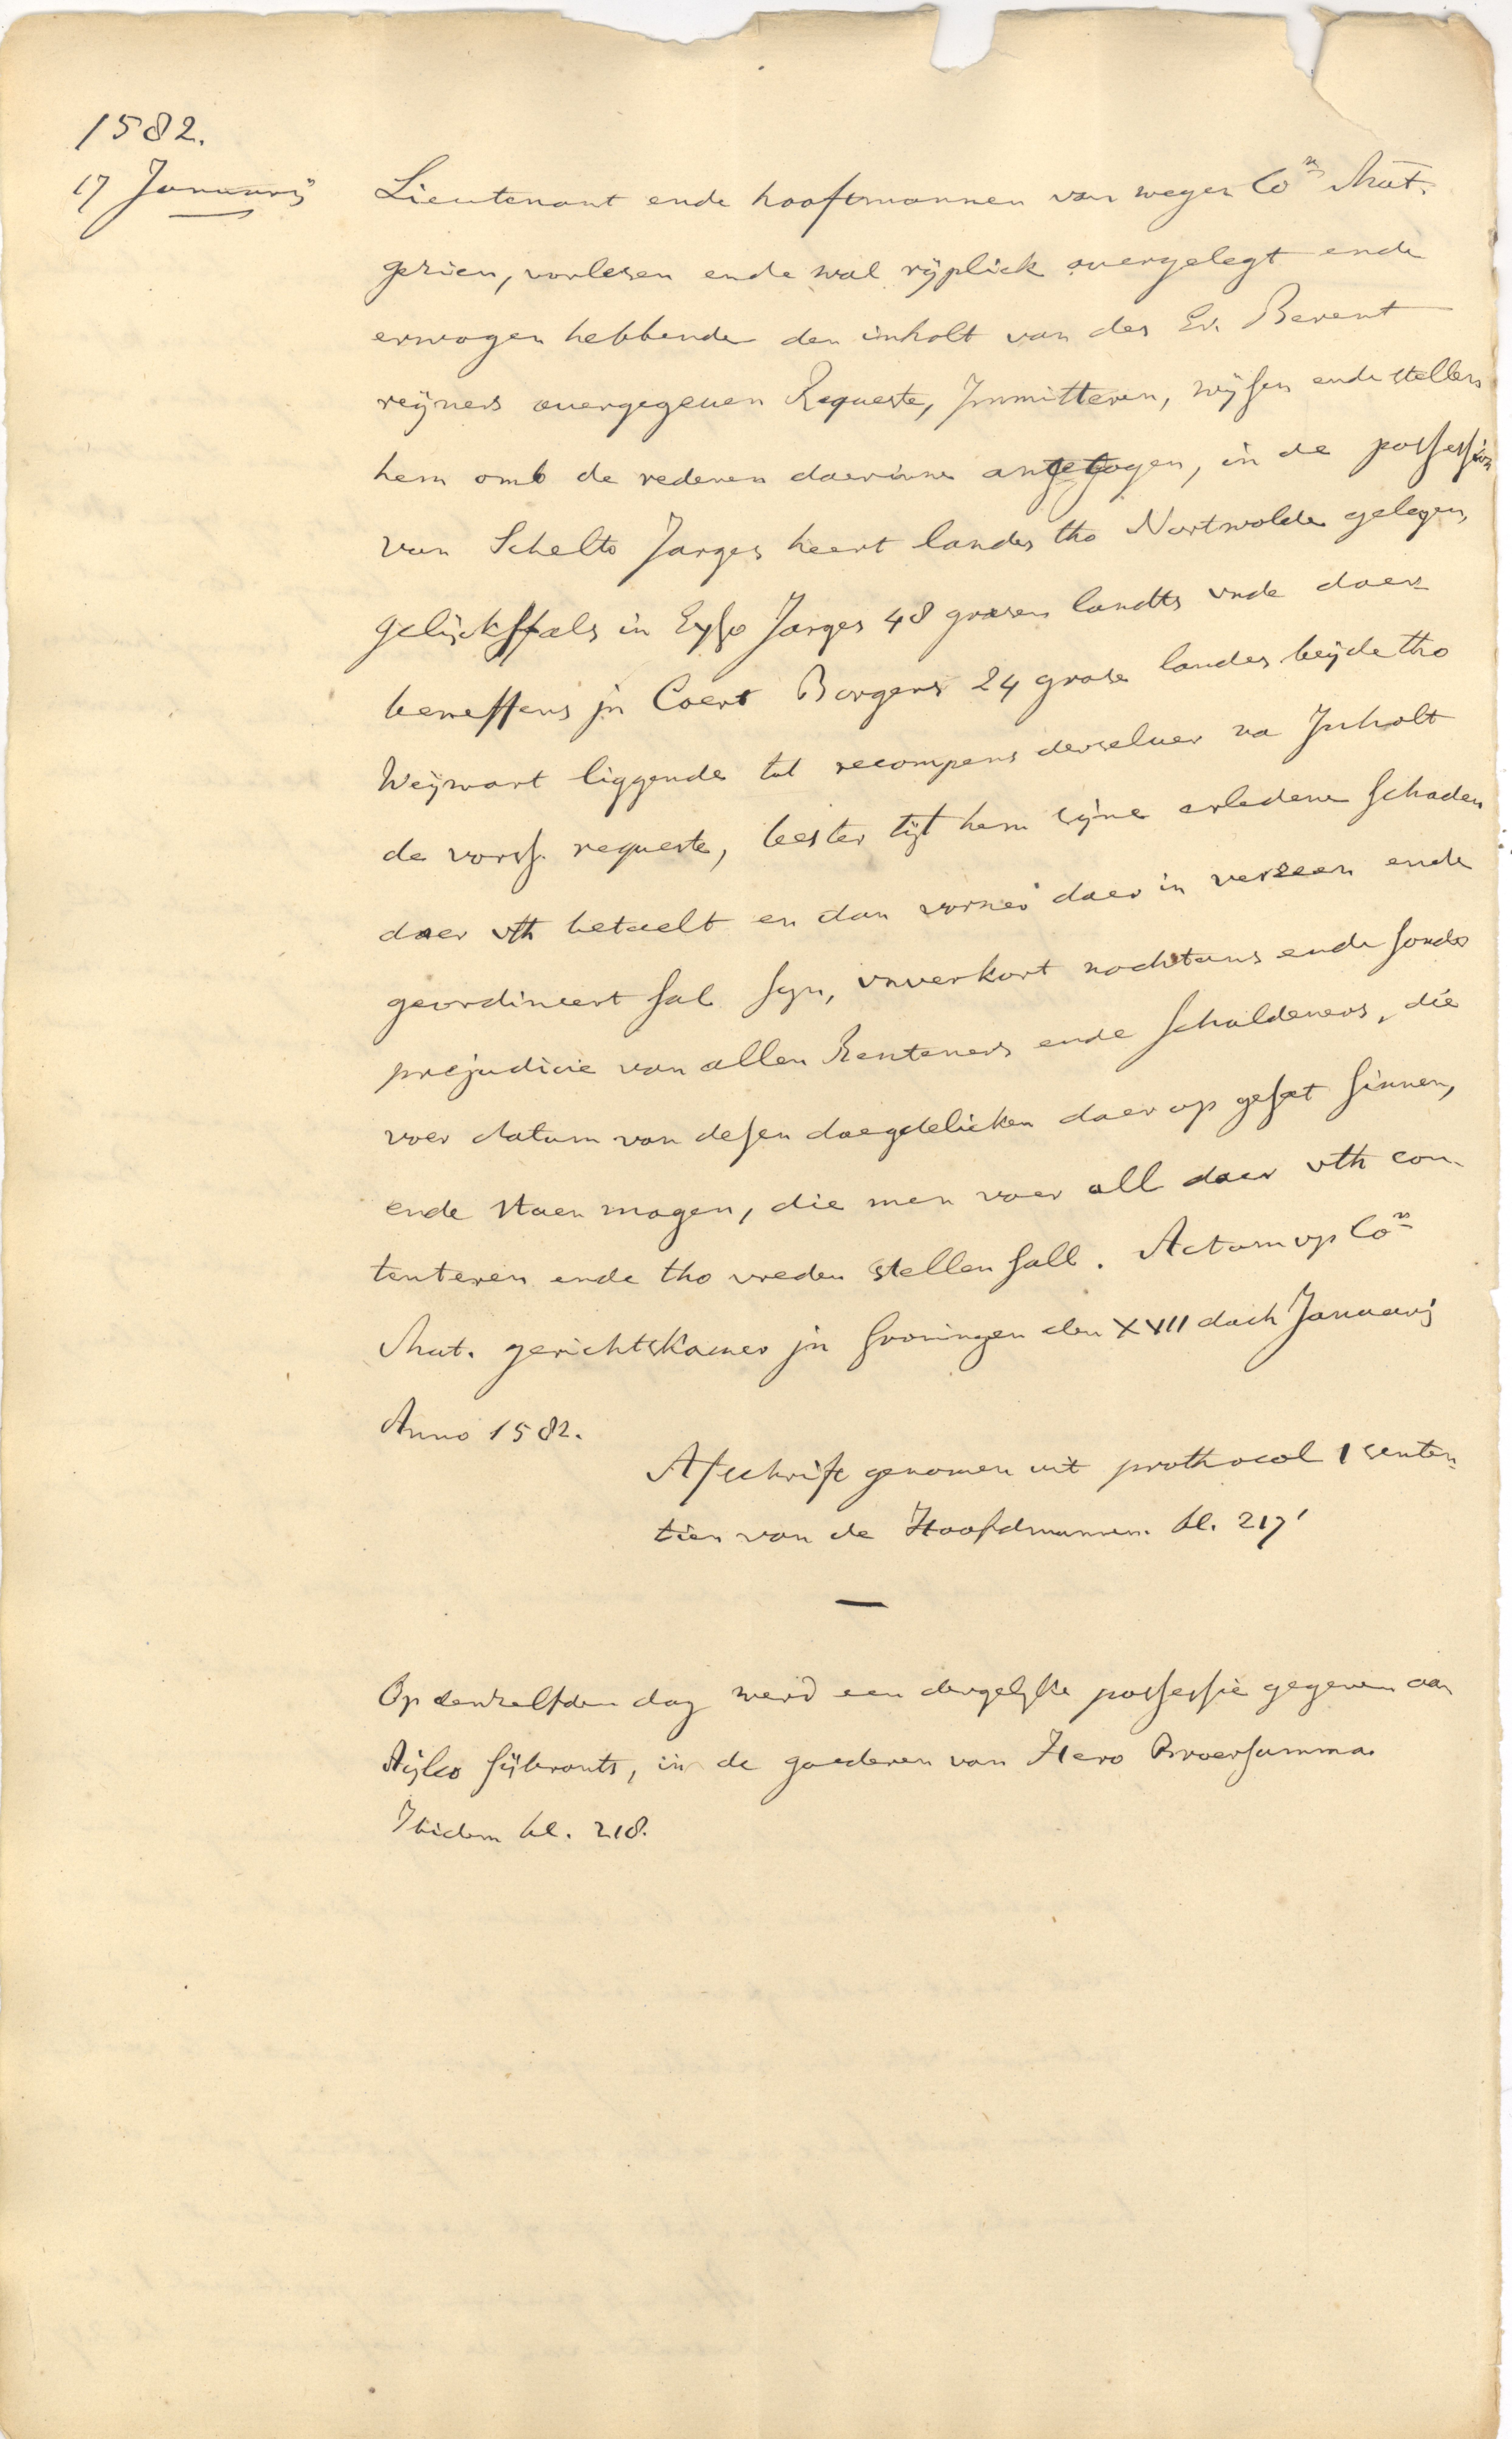 1582.
17 Januarij
Lieutenant ende hooftmannen van wegen Co.n Mat.
gezien, vorlesen ende wal rijplick auergelegt ende
erwogen hebbende den inholt van des Er. Berent
reijners auergegeuen Requeste, Jmmitteren, wijsen ende stellen
hem omb de redenen daerinne angetogen, in de possession
van Schelto Jarges heert landes tho Nortwolde gelegen,
gelijckffals in Eyso Jarges 48 grasen landts vnde daer
beneffens jn Coert Borgers 24 grase landes beijde tho
Weijwart liggende tot recompens derseluer na Jnholt
de vorss. requeste, tester tijt hem sijne erledene schaden
daer vth betaelt en dan vorner daer in verseen ende
geordineert sal syn, vnverkort nochtans ende sonder
prejudicie van allen Renteners ende schuldeners, die
voer datum van desen daegdelicken daer op gesat sinnen,
ende staen mogen, die men voer all daer vth con-
tenteren ende tho vreden stellen sall. Actum op Co.n
Mat. gerichtskamer jn Groningen den XVII dach Januarij
Anno 1582.
Afschrift genomen uit prothocol 1 senten-
tien van de Hoofdmannen. bl. 217'
—
Op denzelfden dag werd een dergelyke possessie gegeven aan
Aijlco sijbrants, in de goederen van Hero Broersamma.
Ibidem bl. 218.